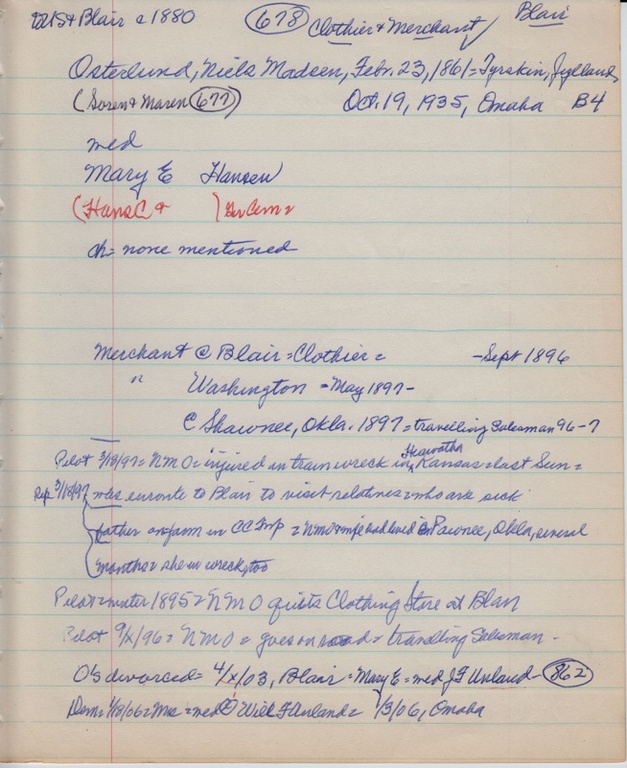 US & Blair c 1880 678 Clothier & Merchant Blair
Osterlund, Niels Madsen, Febr. 23, 1861 = Tyrskin, Jylland,
(Soren & Maren 677) Oct. 19, 1935, Omaha B4
med
Mary E Hansen
(Hans C & )
ch = none mentioned
Merchant @ Blair = Clothier = - Sept 1896
" Washington = May 1897 -
C Shawnee, Okla. 1897 = travelling salesman 96-7
Pilot 3/18/97 = NMO = injured in train wreck in Hiawatha Kansas = last Sun =
Rep 3/18/97 was enroute to Blair to visit relatives = who are sick
father on farm in CC Twp = NMO & wife had lived @ Pawnee, Okla, several
months = she in wreck, too
Pilot = winter 1895 = NMO quits Clothing Store at Blair
Pilot 9/x/96 = NMO = goes on road = travelling salesman -
O's divorced = 4/x/03, Blair = Mary E = med J F Unland 862
Dem = 1/18/06 = Mrs = med Will F Unland = 1/3/06, Omaha